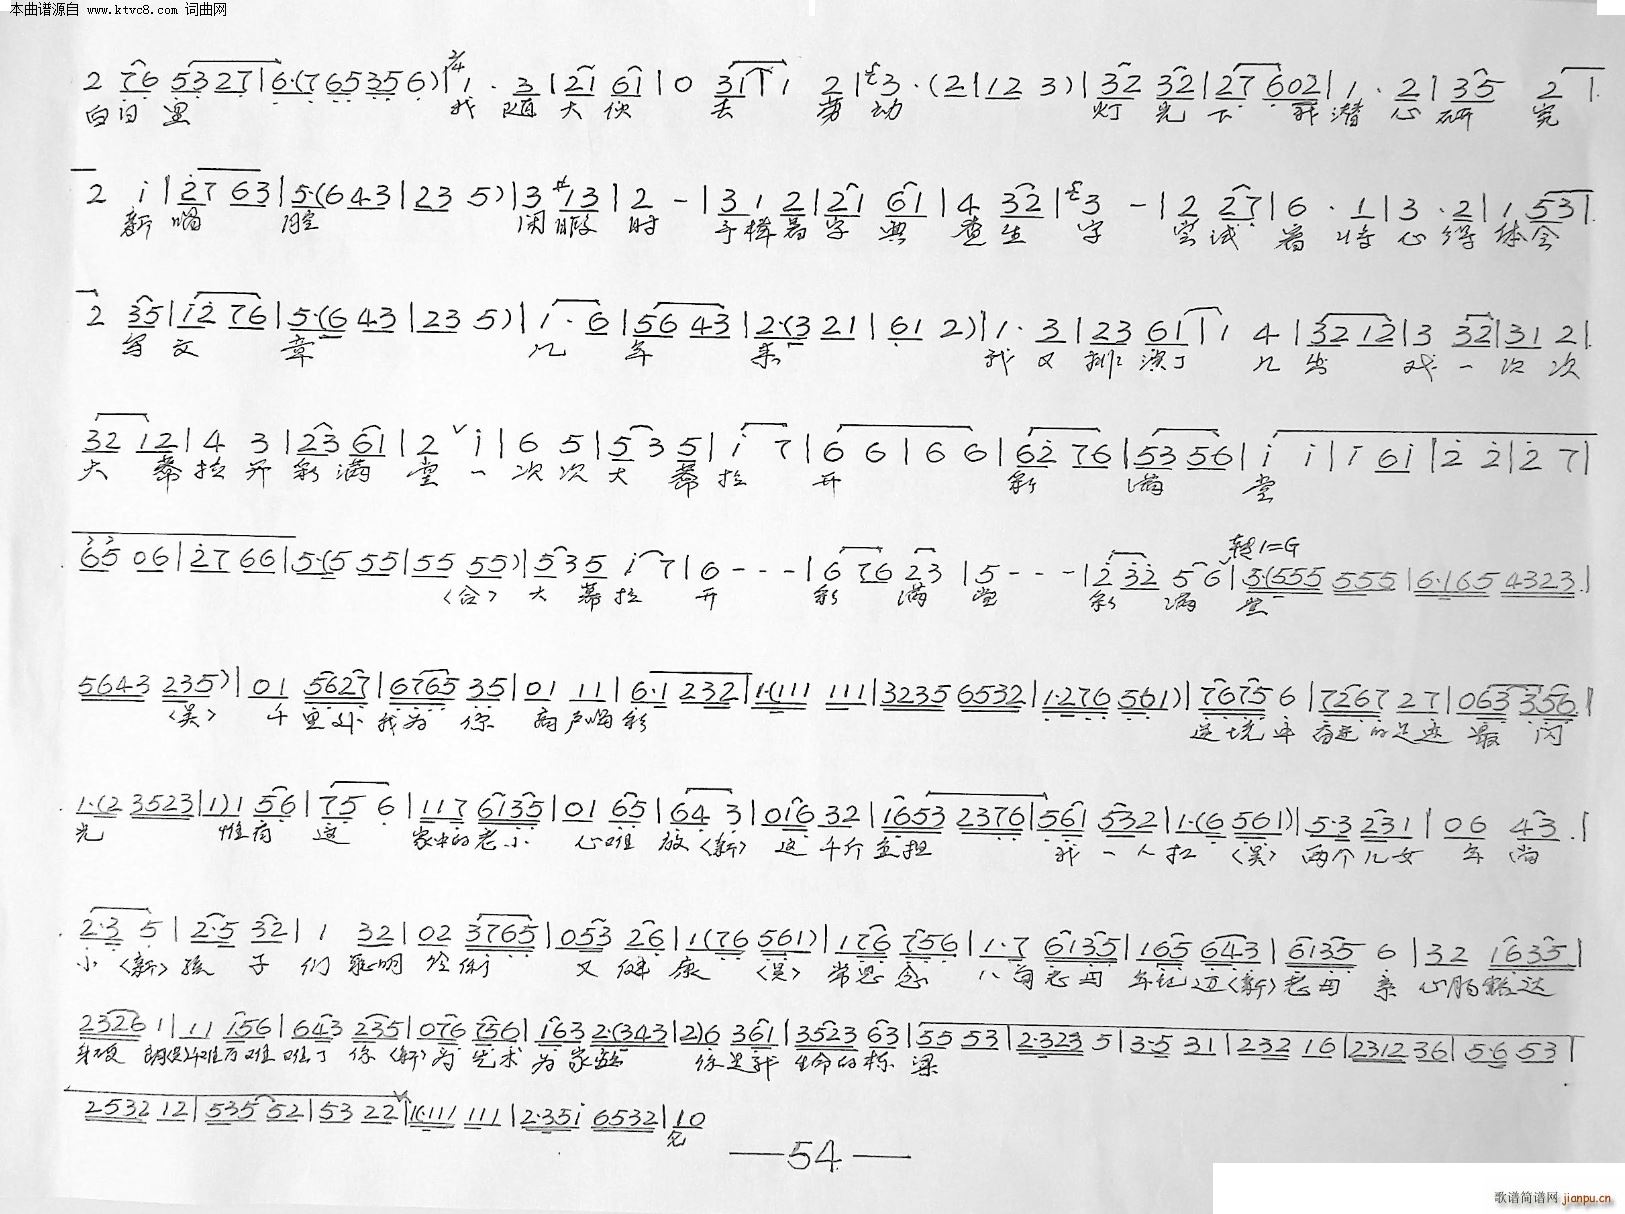 本曲谱源自 www.ktvc8.com 词曲网
2 76 5327 | 6·(765356) | 2/4 1 · 3 | 21 61 | 0 31 | 1 2 | 3 · (2 | 12 3) | 32 32 | 27 602 | 1 · 2 | 35 2 |
白日里 我 随 大 伙 去 劳 动 灯 光 下 我 潜 心 研 究
2 i | 27 63 | 5·(6 43 | 23 5) | 3 #13 | 2 - | 3 1 2 | 21 61 | 4 32 | 3 - | 2 27 | 6 · 1 | 3 · 2 | 1 53 |
新 唱 腔 闲 暇 时 手 捧 着 字 典 查 生 字 尝 试 着 将 心 得 体 会
2 35 | i2 76 | 5·(6 43 | 23 5) | i · 6 | 56 43 | 2·(3 21 | 61 2) | 1 · 3 | 23 61 | 1 4 | 32 12 | 3 32 | 31 2 |
写 文 章 几 年 来 我 又 排 演了 几 出 戏 一 次 次
32 12 | 4 3 | 23 61 | 2 i | 6 5 | 5 3 5 | i 7 | 6 6 | 6 6 | 62 76 | 53 56 | i i | i 6i | 2 2 | 2 7 |
大 幕 拉 开 彩 满 堂 一 次 次 大 幕 拉 开 彩 满 堂
65 06 | 27 66 | 5·(5 55 | 55 55) | 535 i 7 | 6 - - - | 6 76 23 | 5 - - - | 2 32 5 6 | 转1=G 5·(555 555 | 6·165 4323 |
〈合〉 大 幕 拉 开 彩 满 堂 彩 满 堂
5643 235) | 01 5627 | 6765 35 | 01 11 | 6·1 232 | 1·(111 111 | 3235 6532 | 1·276 561) | 7675 6 | 7267 27 | 063 356 |
〈吴〉 千 里外 我为 你 高声喝彩 这 奋进的足迹 最 闪
1·(2 3523 | 1) 1 56 | 75 6 | 117 6135 | 01 65 | 64 3 | 016 32 | 1653 2376 | 561 532 | 1·(6 561) | 5·3 231 | 06 43 |
光 惟有 这 家中的老小 心难 放〈新〉 这 千斤重担 我 一 人 扛 〈吴〉 两个儿女 年 尚
2·3 5 | 2·5 32 | 1 32 | 02 3765 | 053 26 | 1(76 561) | 176 756 | 1·7 6135 | 165 643 | 6135 6 | 32 1635 |
小〈新〉孩 子 们 聪明 伶俐 又 健 康 〈吴〉 常思念 八旬老母 年纪迈〈新〉老母 亲 心胸豁达
2326 1 | 11 156 | 643 235 | 076 756 | 163 2·(343 | 2)6 361 | 3523 63 | 55 53 | 2·323 5 | 3·5 31 | 232 16 | 2312 36 | 5·6 53 |
难为 难为了 你〈新〉为 艺术 为 家庭 你是我 生命的栋 梁
2532 12 | 535 52 | 53 22 | 1·111 111 | 2·35i 6532 | 10
完
—54—
歌谱简谱网 jianpu.cn